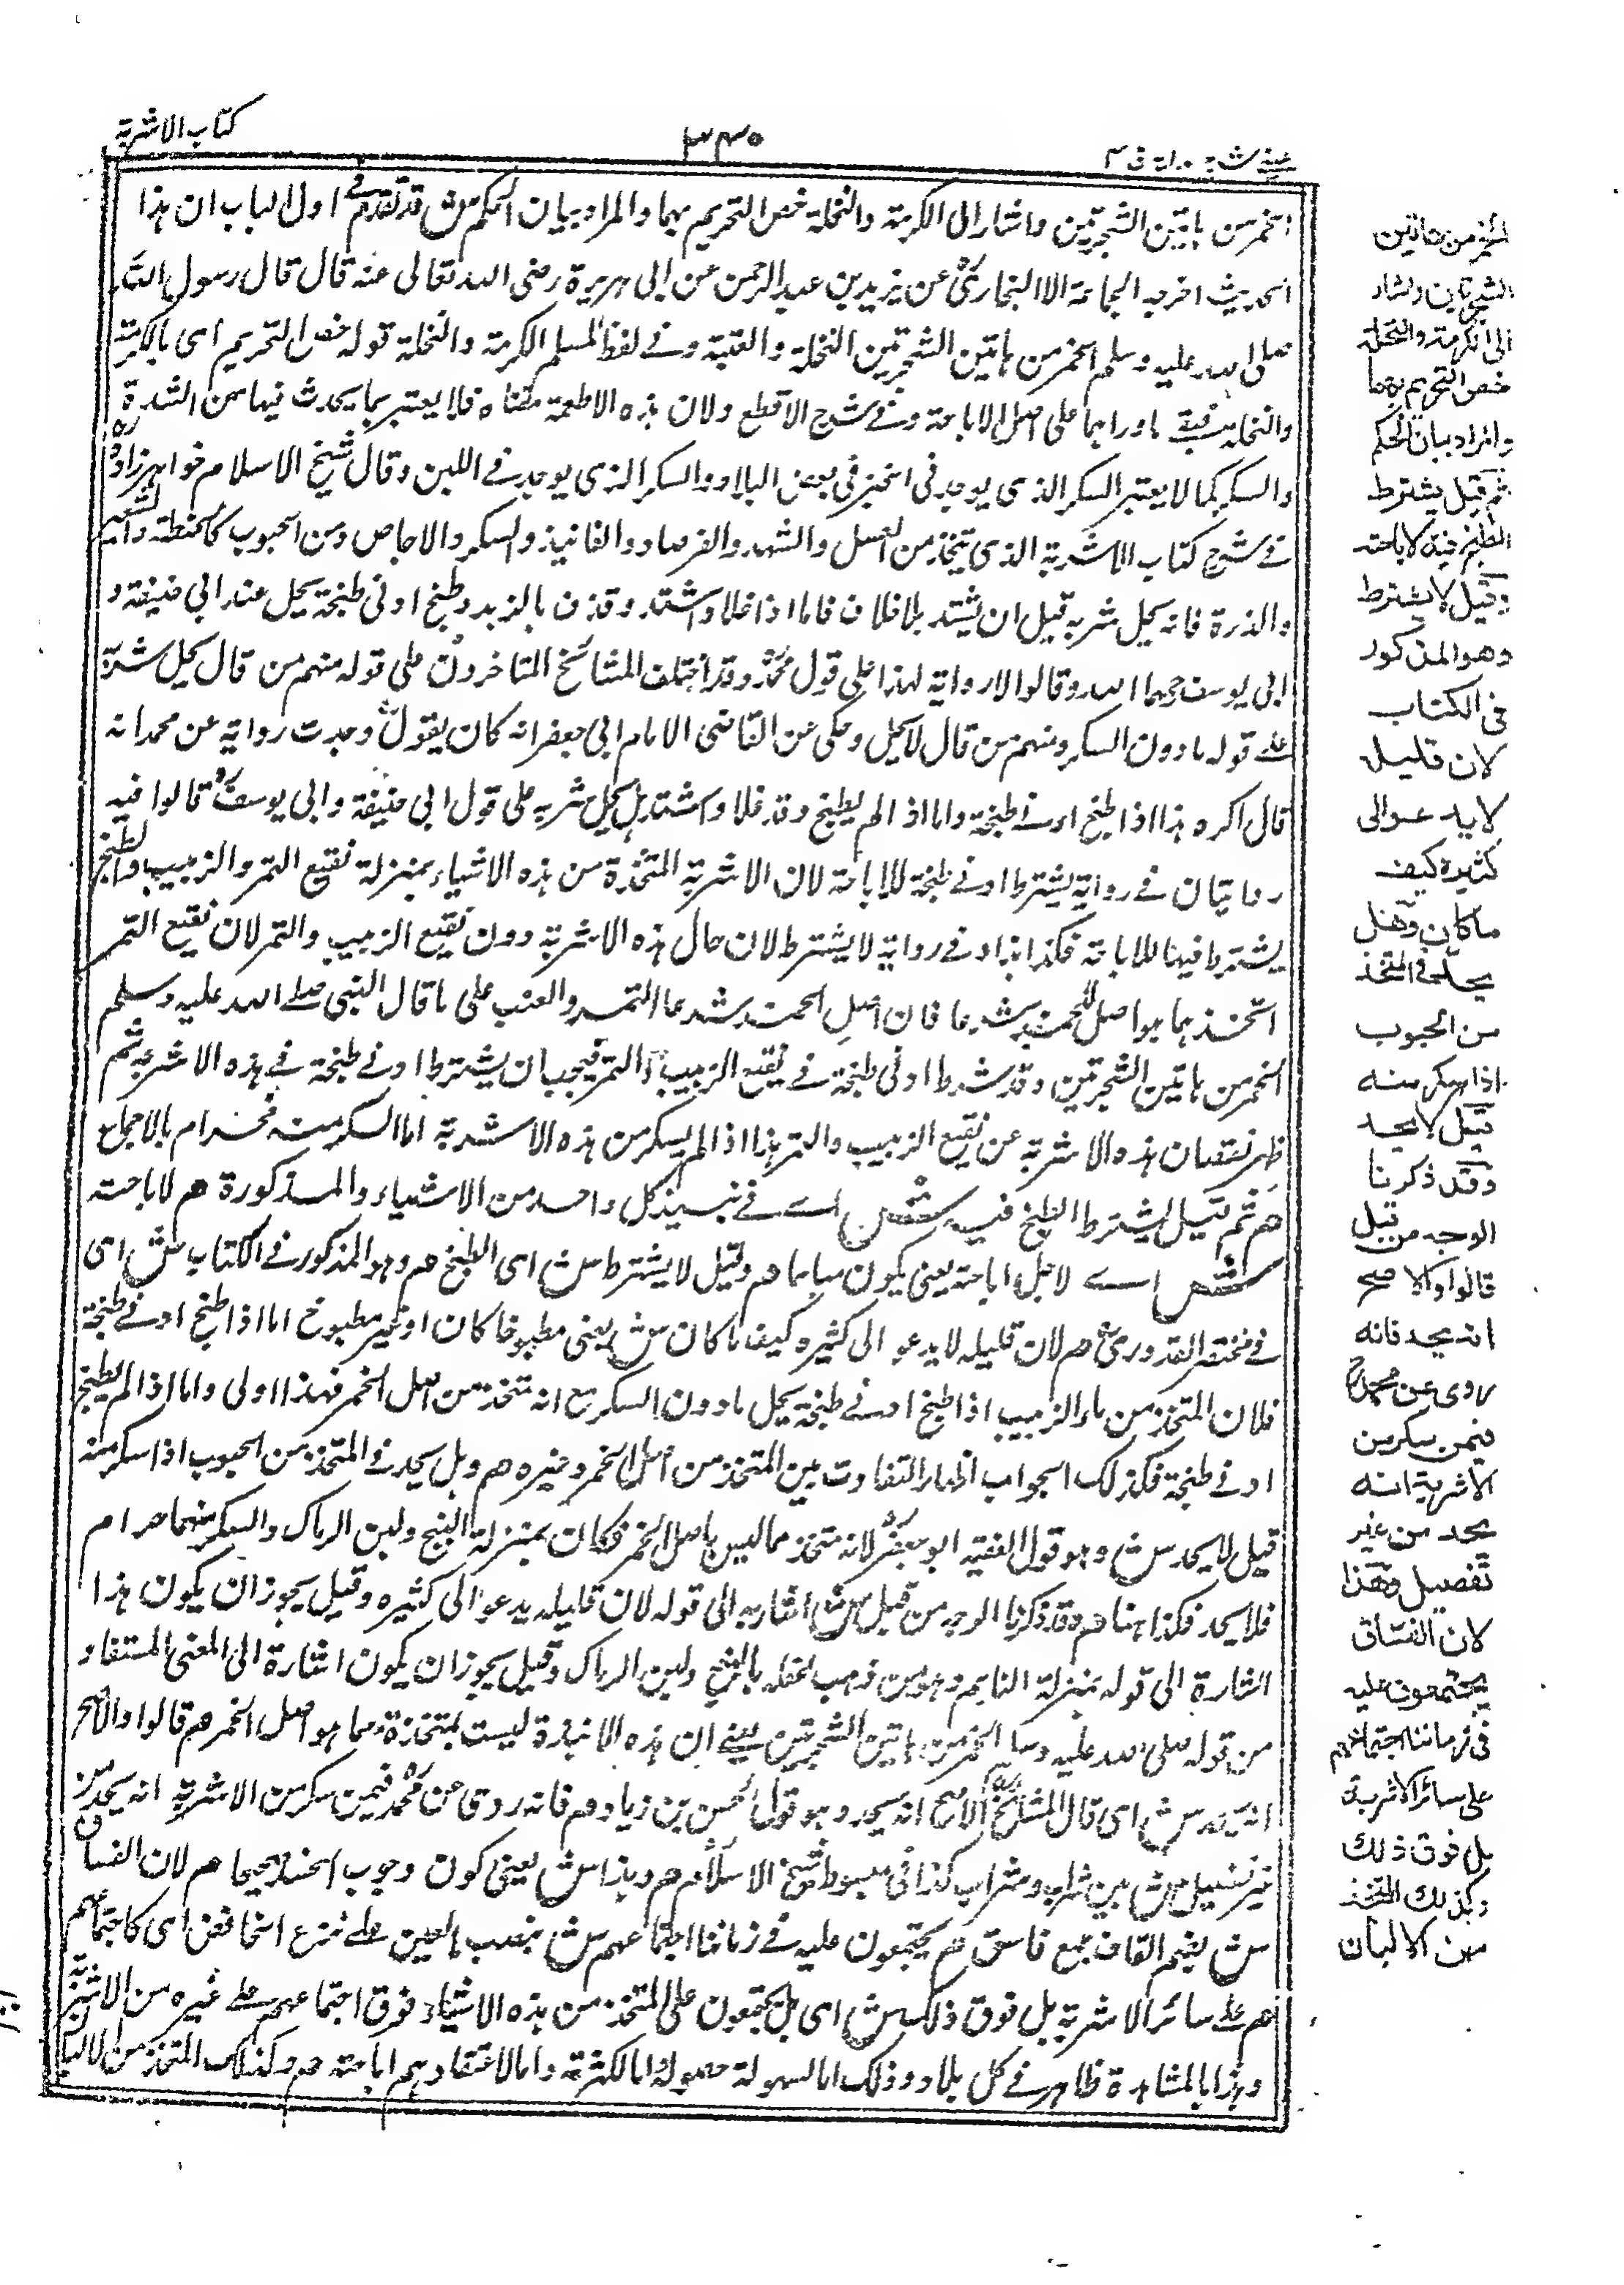 كتاب الاشربة
٣٤٠
الخمر من ہاتين الشجرتين واشار الى الكرمة والنخلة خص التحريم بهما والمراد بيان الحكم ش قد تقدم فے اول الباب ان ہذا
الحديث اخرجه الجماعة الا البخاری عن يزيد بن عبد الرحمن عن ابى هريرة رضى الله تعالى عنه قال قال رسول الله
صلى الله عليه وسلم الخمر من ہاتين الشجرتين النخلة والعنبة وفے لفظ لمسلم الكرمة والنخلة قوله خص التحريم اى بالكرمة
والنخلة فبقے ما وراہما على اصل الاباحة وفے شرح الاقطع ولان ہذه الاطعمة فلا يعتبر بما يحدث فيها من الشدة
والسكر كما لا يعتبر السكر الذى يوجد فى الخبز فى بعض البلاد والسكر الذى يوجد فے اللبن وقال شيخ الاسلام خواہر زاده
فے شرح كتاب الاشربة الذى يتخذ من العسل والشهد والفرصاد والفانيذ والسكر والاجاص ومن الحبوب كالحنطة والشعير
والذرة فانه يحل شربه قبل ان يشتد بلا خلاف فاما اذا غلا واشتد وقذف بالزبد وطبخ ادنى طبخة يحل عند ابى حنيفة و
ابى يوسف رحمهما الله وقالوا لا رواية لهذا على قول محمد وقد اختلف المشائخ المتاخرون على قوله منهم من قال يحل شربه
علے قوله ما دون السكر ومنهم من قال لا يحل وحكى عن القاضى الامام ابى جعفر انه كان يقول وجدت رواية عن محمد انه
قال اكره ہذا اذا طبخ ادنے طبخة واما اذا لم يطبخ وقد غلا واشتد ہل يحل شربه على قول ابى حنيفة وابى يوسف قالوا فيه
روايتان فے رواية يشترط ادنے طبخة للاباحة لان الاشربة المتخذة من ہذه الاشياء بمنزلة نقيع التمر والزبيب والطبخ
يشترط فيها للاباحة فكذا ہذا وفے رواية لا يشترط لان حال ہذه الاشربة دون نقيع الزبيب والتمر لان نقيع التمر
اتخذ مما ہو اصل للخمر شرعا فان اصل الخمر شرعا التمر والعنب على ما قال النبى صلے الله عليه وسلم
الخمر من ہاتين الشجرتين وقد شرط ادنى طبخة فے نقيع الزبيب والتمر فيجب ان يشترط ادنے طبخة فے ہذه الاشربة ثم
ظہر نقصان ہذه الاشربة عن نقيع الزبيب والتمر ہذا اذا لم يسكر من ہذه الاشربة اما السكر منه فحرام بالاجماع
هم ثم قيل يشترط الطبخ فيه ش اے فے نبيذ كل واحد من الاشياء المذكورة هم لاباحته
ش اے لاجل اباحته يعنى يكون مباحا هم وقيل لا يشترط ش اى الطبخ هم وہو المذكور فے الكتاب ش اى
فے مختصر القدورى هم لان قليله لا يدعو الى كثيره كيف ما كان ش يعنى مطبوخا كان او غير مطبوخ اما اذا طبخ ادنے طبخة
فلان المتخذ من ماء الزبيب اذا طبخ ادنے طبخة يحل ما دون السكر مع انه متخذ من اصل الخمر فهذا اولى واما اذا لم يطبخ
ادنے طبخة فكذلك الجواب اظہار التفاوت بين المتخذ من اصل الخمر وغيره هم وہل يحد فے المتخذ من الحبوب اذا سكر منه
قيل لا يحد ش وہو قول الفقيه ابو جعفر لانه متخذ مما ليس باصل الخمر فكان بمنزلة البنج ولبن الرماك والسكر منهما حرام
فلا يحد فكذا ہنا هم وقد ذكرنا الوجه من قبل ش اشار به الى قوله لان قليله يدعو الى كثيره وقيل يجوز ان يكون ہذا
اشارة الى قوله بمنزلة النائم ومن ذہب عقله بالبنج ولبن الرماك وقيل يجوز ان يكون اشارة الى المعنى المستفاد
من قوله صلى الله عليه وسلم الخمر من ہاتين الشجرتين يعنے ان ہذه الانبذة ليست بمتخذة مما ہو اصل الخمر هم قالوا والاصح
انه يحد ش اى قال المشائخ الاصح انه يحد وہو قول حسن بن زياد هم فانه روى عن محمد فيمن سكر من الاشربة انه يحد من
غير تفصيل ش بين شراب وشراب كذا فى مبسوط شيخ الاسلام هم وہذا ش يعنى كون وجوب الحد صحيحا هم لان الفساق
ش بضم القاف جمع فاسق هم يجتمعون عليه فے زماننا اجتماعهم ش بنصب العين علے نزع الخافض اى كاجتماعهم
هم علے سائر الاشربة بل فوق ذلك ش اى بل يجتمعون على المتخذ من ہذه الاشياء فوق اجتماعهم علے غيره من الاشربة
وہذا بالمشاہدة ظاہر فے كل بلاد وذلك اما لسهولة حصوله اما لكثرته واما لاعتقادہم اباحته هم وكذلك المتخذ من الالبان
الخمر من هاتين
الشجرتين واشار
الى الكرمة والنخلة
خص التحريم بهما
والمراد بيان الحكم
ثم قيل يشترط
الطبخ فيه لاباحته
وقيل لا يشترط
وهو المذكور
فى الكتاب
لان قليله
لا يدعو الى
كثيره كيف
ما كان وهل
يحد فى المتخذ
من الحبوب
اذا سكر منه
قيل لا يحد
وقد ذكرنا
الوجه من قبل
قالوا والاصح
انه يحد فانه
روى عن محمد
فيمن سكر من
الاشربة انه
يحد من غير
تفصيل وهذا
لان الفساق
يجتمعون عليه
فى زماننا اجتماعهم
على سائر الاشربة
بل فوق ذلك
وكذلك المتخذ
من الالبان